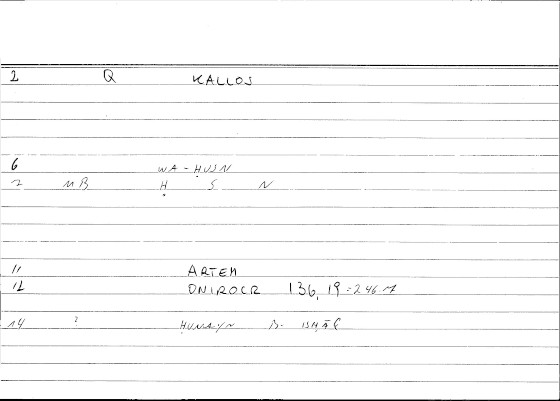 2 Q KALLOS
6 WA-ḤUSN
7 MB Ḥ S N
11 ARTEM
12 ONIROCR 136, 19 = 246
14 ? ḤUNAYN B.